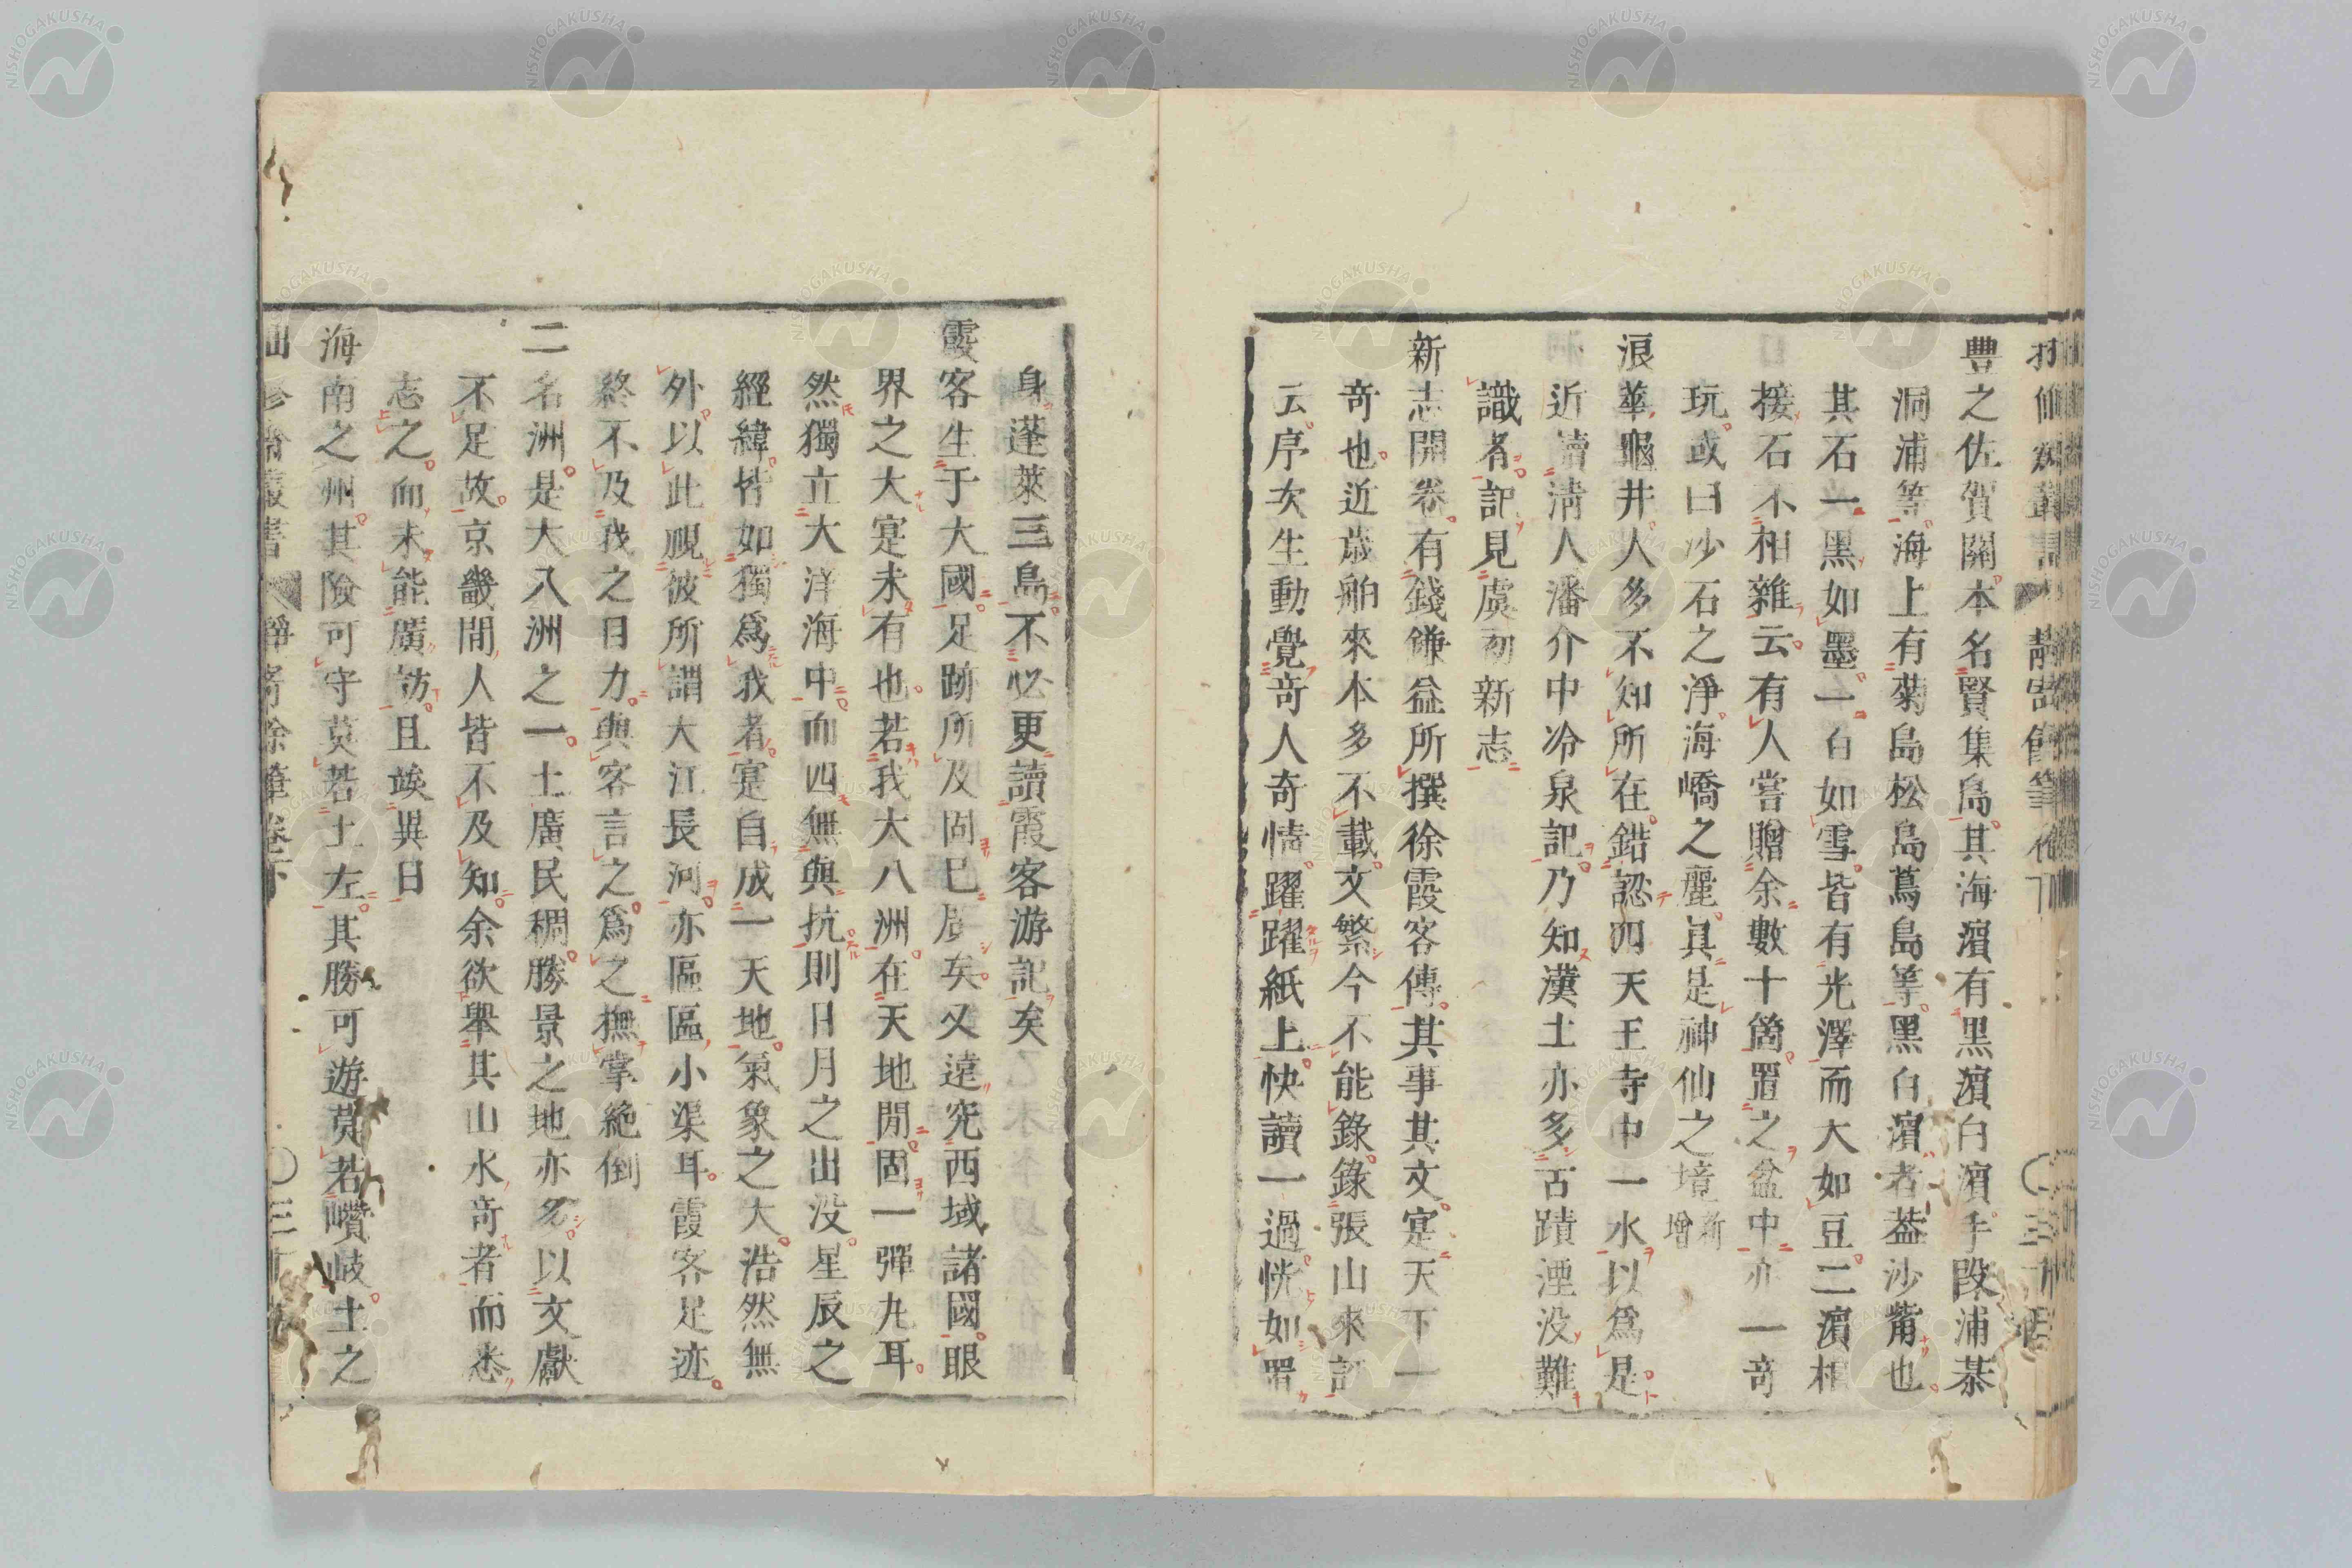 豐之佐賀關本名賢集島其海濵有黒濵白濵手段浦恭
洞浦等海上有菊島松島蔦島等黑白濵者葢沙觜也
其石一黑如墨一白如雪皆有光澤而大如豆二濵相
接石不相雜云有人嘗贈余數十箇置之盆中亦一奇
玩或曰沙石之淨海嶠之麗眞是神仙之境新增
浪華龜井人多不知所在錯認四天王寺中一水以爲是
近讀淸人潘介中冷泉記乃知漢土亦多古蹟湮没難
識者記見虞初新志
新志開卷有錢鎌益所撰徐霞客傳其事其文寔天下一
奇也近歲舶來本多不載文繁今不能錄錄張山來評
云序次生動覺奇人奇情躍躍紙上快讀一過恍如置
身蓬萊三島不必更讀霞客游記矣
霞客生于大國足跡所及固已居矣又遠究西域諸國眼
界之大寔未有也若我大八洲在天地閒固一彈丸耳
然獨立大洋海中而四無與抗則日月之出没星辰之
經緯皆如獨爲我者寔自成一天地氣象之大浩然無
外以此視彼所謂大江長河亦區區小渠耳霞客足迹
終不及我之日力與客言之爲之撫掌絶倒
二名洲是大八洲之一土廣民稠勝景之地亦多以文獻
不足故京畿閒人皆不及知余欲舉其山水奇者而悉
志之而未能廣訪且竢異日
海南之州其險可守莫若土左其勝可遊莫若巑岐土之